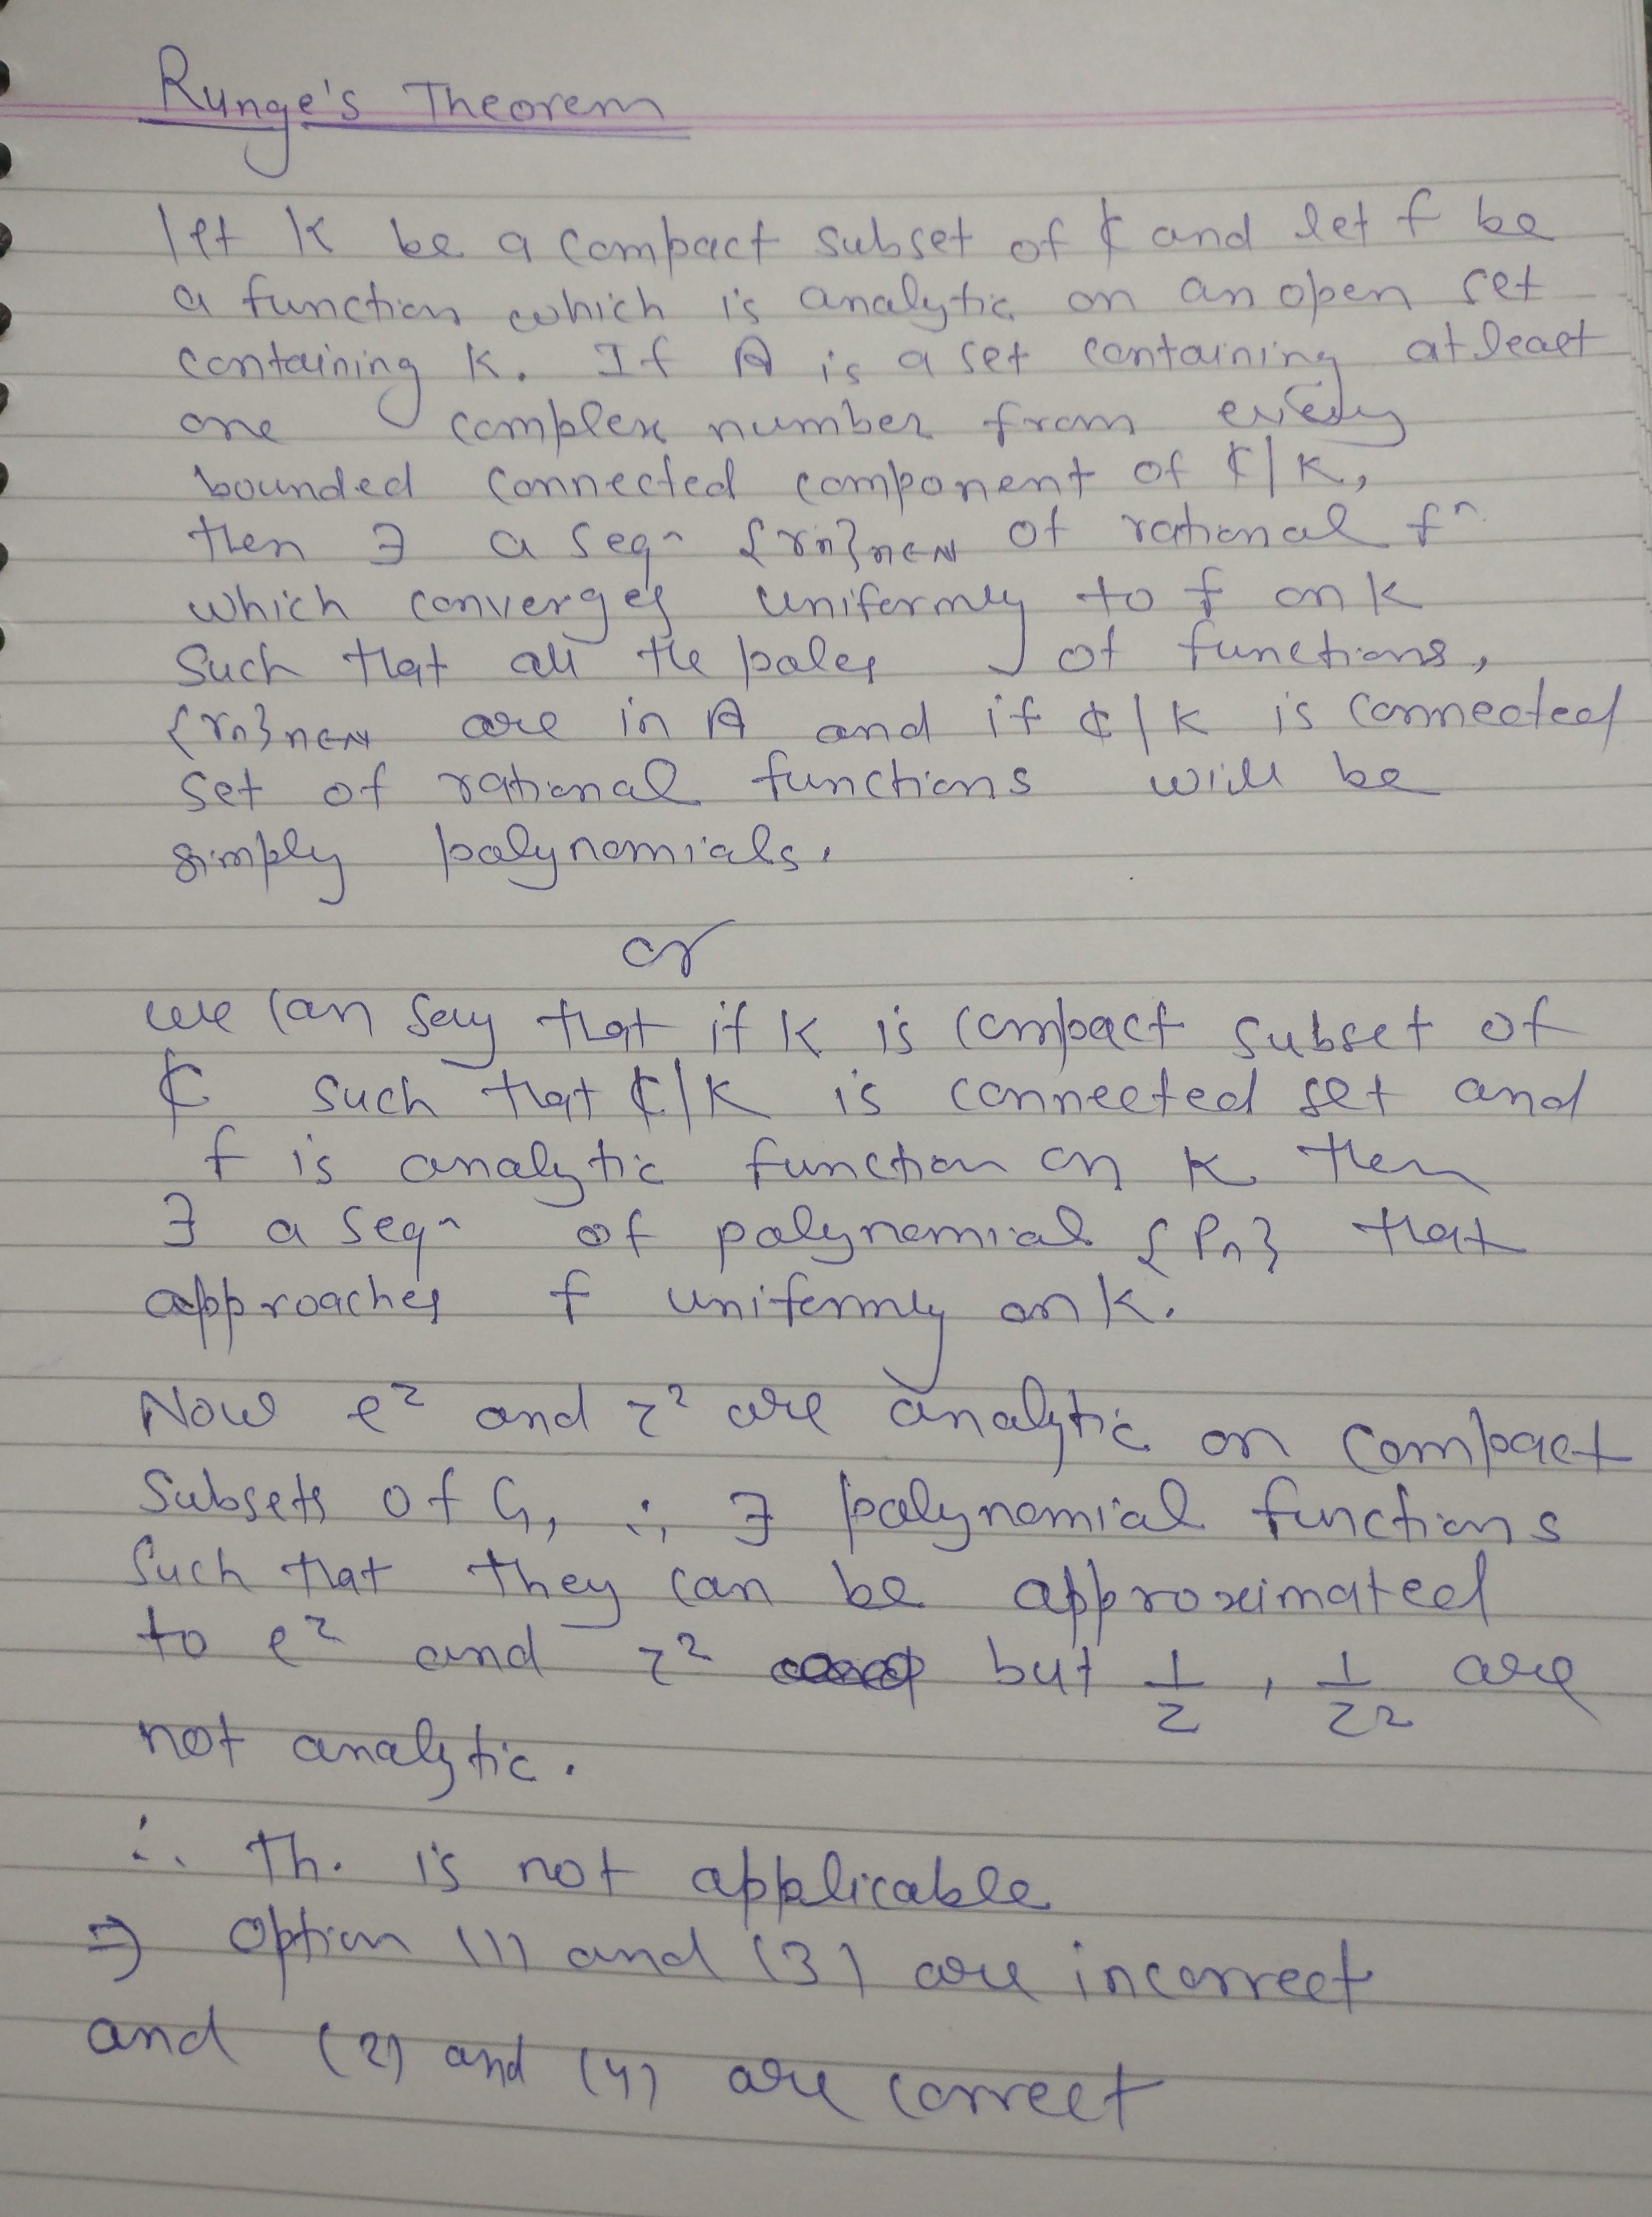 Runge's Theorem
let K be a compact subset of ₵ and let f be
a function which is analytic on an open set
containing K. If A is a set containing atleast
one complex number from every
bounded connected component of ₵|K,
then ∃ a seqⁿ {rn}n∈N of rational fⁿ
which converges uniformly to f on K
Such that all the poles of functions,
{rn}n∈N are in A and if ₵|K is connected
set of rational functions will be
simply polynomials.
or
we can say that if K is compact subset of
₵ such that ₵|K is connected set and
f is analytic function on K then
∃ a seqⁿ of polynomial {Pn} that
approaches f uniformly on K.
Now e² and z² are analytic on compact
Subsets of G, ∴ ∃ polynomial functions
Such that they can be approximated
to e² and z² but 1/z, 1/z2 are
not analytic.
∴ Th. is not applicable
⇒ option (1) and (3) are incorrect
and (2) and (4) are correct